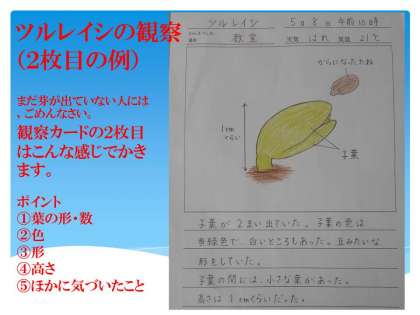 ツルレイシの観察
(2枚目の例)
まだ芽が出ていない人には
、ごめんなさい。
観察カードの2枚目
はこんな感じでかき
ます。
ポイント
①葉の形・数
②色
③形
④高さ
⑤ほかに気づいたこと
ツルレイシ 5月8日午前10時
教室 天気 はれ 気温 21℃
からになったたね
1cm
くらい
子葉
子葉が2まい出ていた。子葉の色は
黄緑色で、白いところもあった。豆みたいな
形をしていた。
子葉の間には、小さな葉があった。
高さは1cmくらいだった。